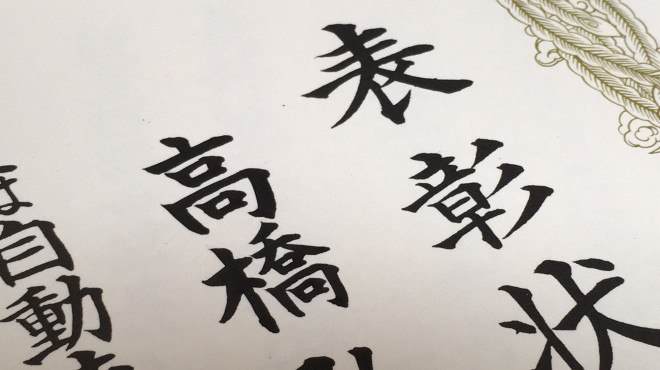 表彰状
高橋
は自動